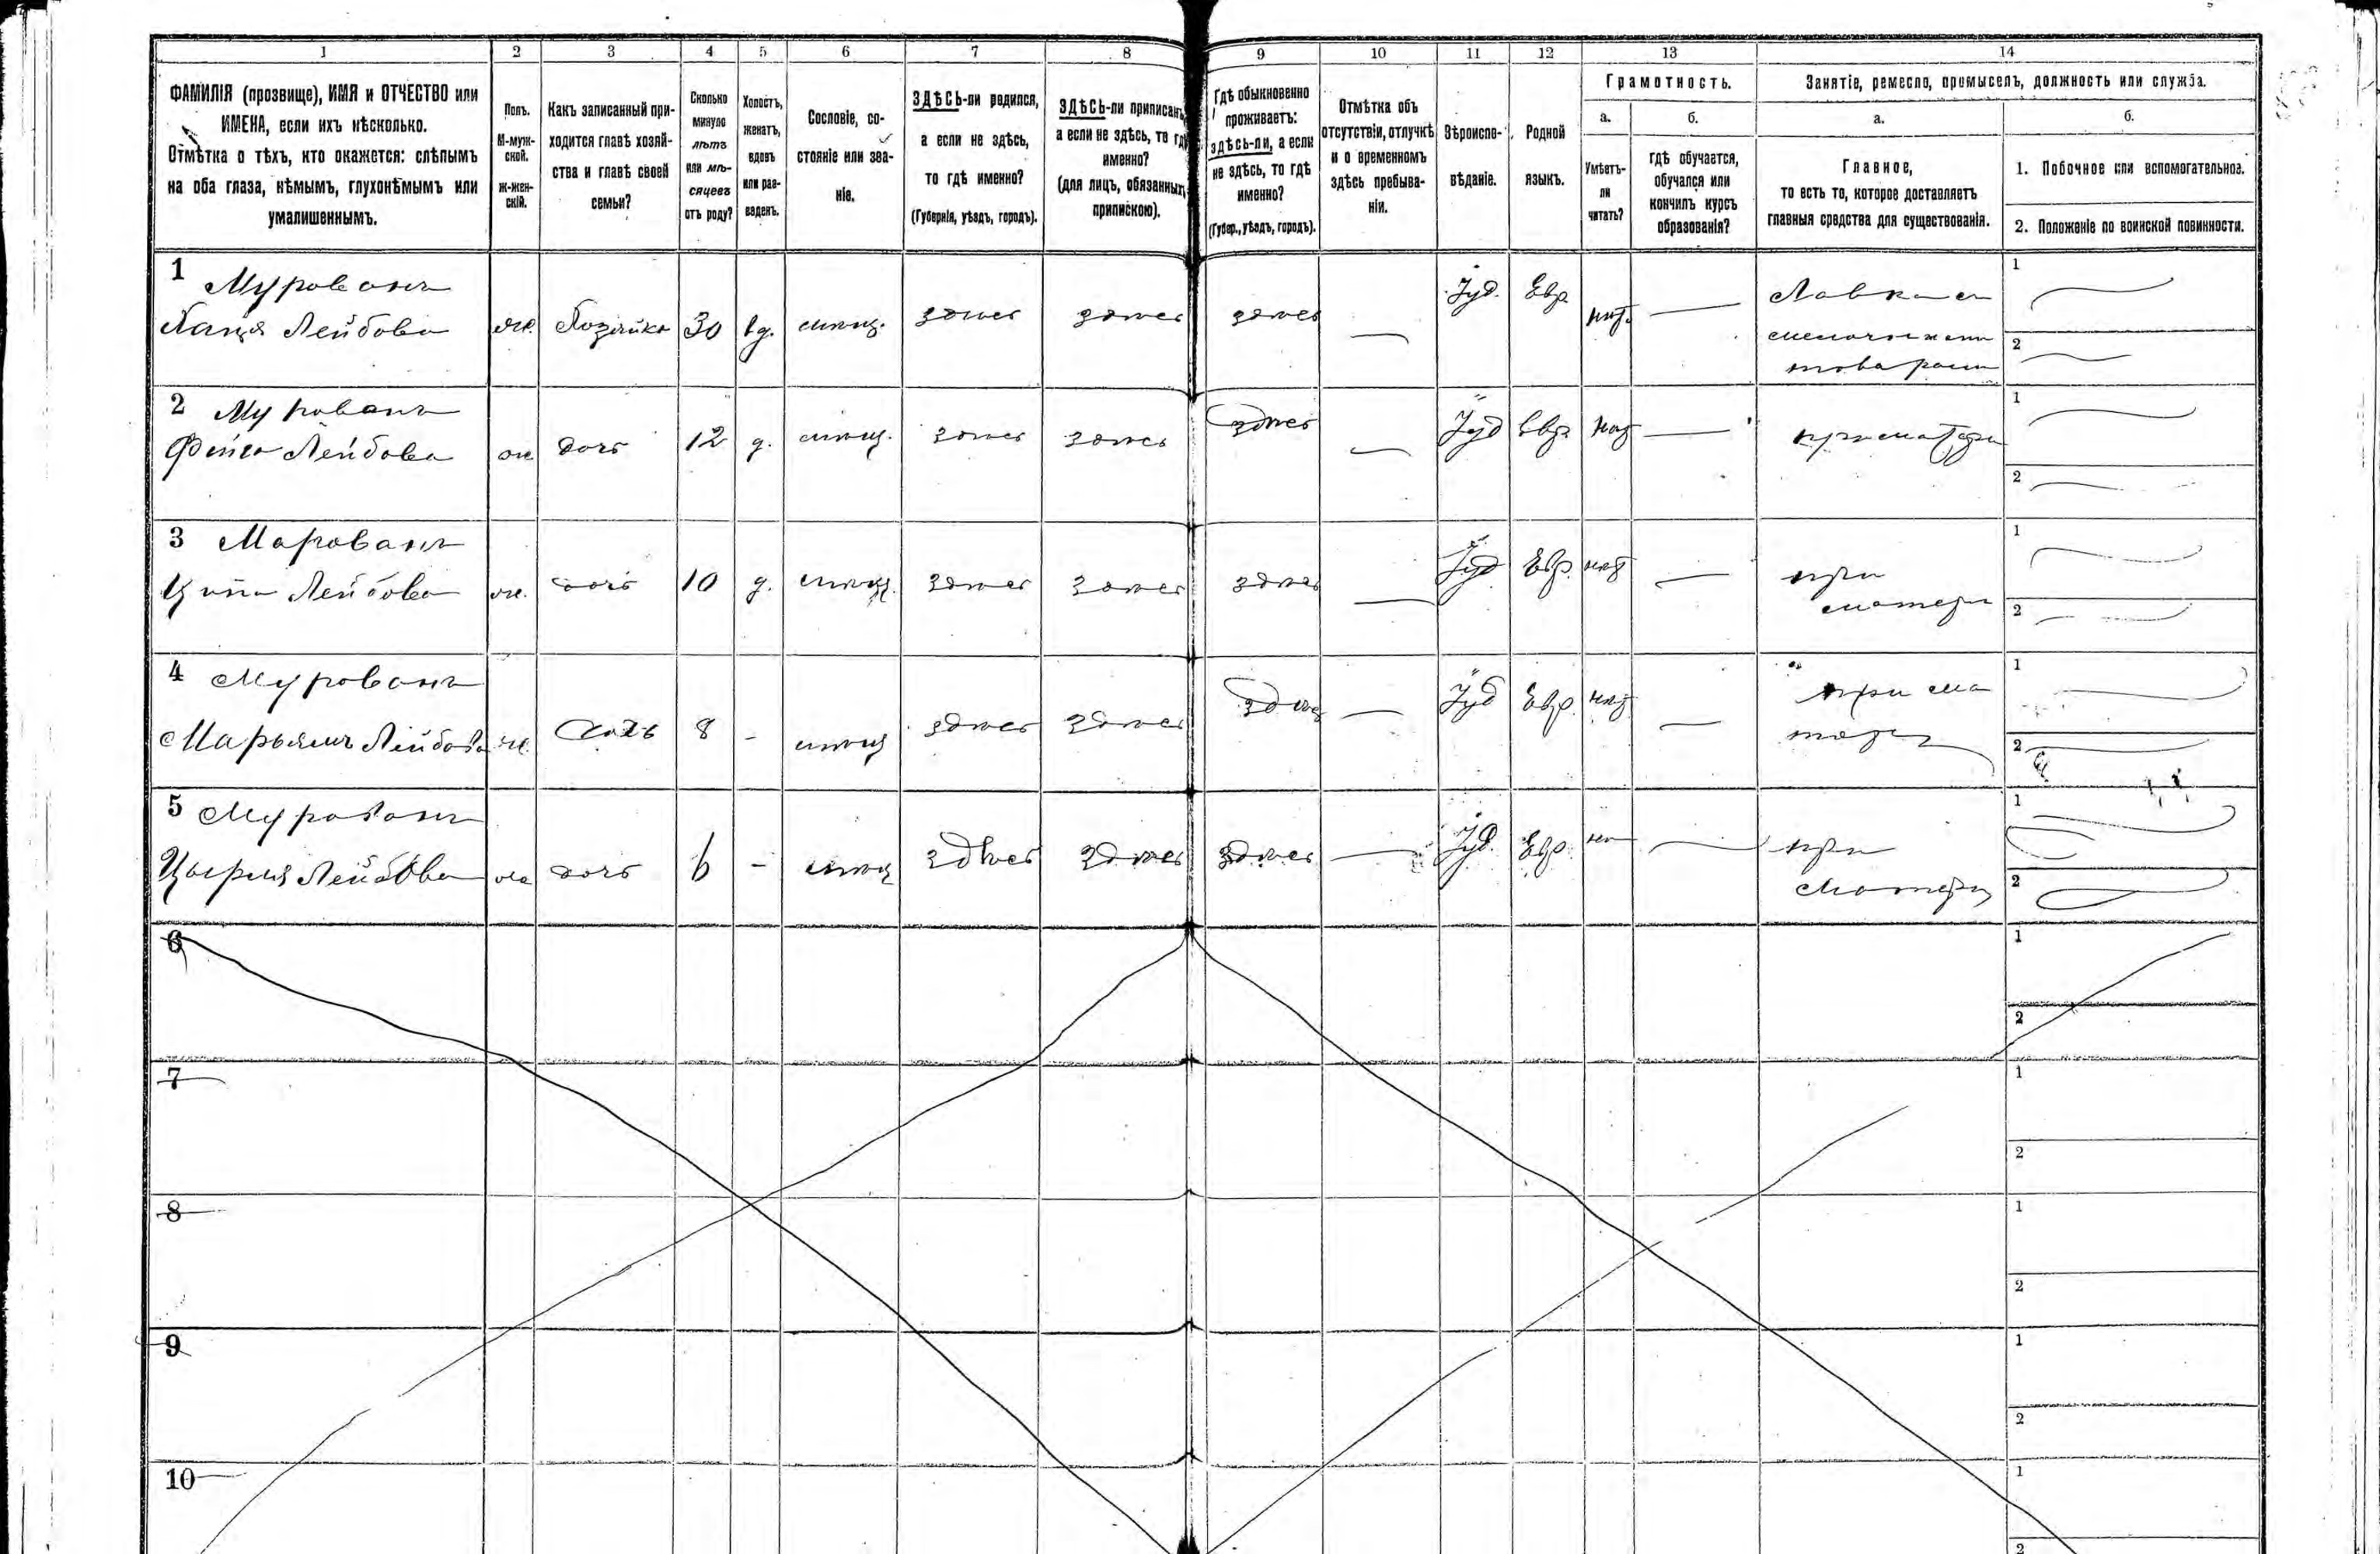 1 2 3 4 5 6 7 8 9 10 11 12 13 14
ФАМИЛІЯ (прозвище), ИМЯ и ОТЧЕСТВО или
ИМЕНА, если ихъ нѣсколько.
Отмѣтка о тѣхъ, кто окажется: слѣпымъ
на оба глаза, нѣмымъ, глухонѣмымъ или
умалишеннымъ.
Полъ.
М-муж-
ской.
Ж-жен-
скій.
Какъ записанный при-
ходится главѣ хозяй-
ства и главѣ своей
семьи?
Сколько
минуло
лѣтъ
или мѣ-
сяцевъ
отъ роду?
Холостъ,
женатъ,
вдовъ
или раз-
веденъ.
Сословіе, со-
стояніе или зва-
ніе.
ЗДѢСЬ-ли родился,
а если не здѣсь,
то гдѣ именно?
(Губернія, уѣздъ, городъ).
ЗДѢСЬ-ли приписанъ,
а если не здѣсь, то гдѣ
именно?
(для лицъ, обязанныхъ
припискою).
Гдѣ обыкновенно
проживаетъ:
здѣсь-ли, а если
не здѣсь, то гдѣ
именно?
(Губер., уѣздъ, городъ).
Отмѣтка объ
отсутствіи, отлучкѣ
и о временномъ
здѣсь пребыва-
ніи.
Вѣроиспо-
вѣданіе.
Родной
языкъ.
Грамотность.
а.
Умѣетъ-
ли
читать?
б.
гдѣ обучается,
обучался или
кончилъ курсъ
образованія?
Занятіе, ремесло, промыселъ, должность или служба.
а.
Главное,
то есть то, которое доставляетъ
главныя средства для существованія.
б.
1. Побочное или вспомогательное.
2. Положеніе по воинской повинности.
1 Мурованъ
Лейбова ж. Хозяйка 30 вд. мѣщ. здѣсь здѣсь здѣсь — Іуд. Евр. нѣт — Лавка съ
мелочными
товарами
1
2
2 Мурованъ
Фейга Лейбова ж дочь 12 д. мѣщ. здѣсь здѣсь здѣсь — Іуд Евр нѣт — при матери
1
2
3 Марованъ
Ципа Лейбова ж. дочь 10 д. мѣщ. здѣсь здѣсь здѣсь — Іуд Евр. нѣт — при
матери
1
2
4 Мурованъ
Марьямъ Лейбова ж. дочь 8 - мѣщ здѣсь здѣсь здѣсь — Іуд Евр. нѣт — при ма
тери
1
2
5 Мурованъ
Лейбова ж дочь 6 - мѣщ здѣсь здѣсь здѣсь — Іуд. Евр. нѣ — при
матери
1
2
6
1
2
7
1
2
8
1
2
9
1
2
10
1
2